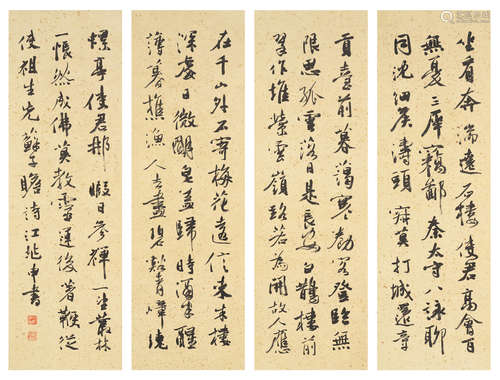 坐看奔湍遶石樓使君高會百
無憂三犀竊鄙秦太守八詠聊
同沈隱侯濤頭寂寞打城還章
貢臺前暮靄寒勌客登臨無
限思孤雲落日是長安白鵲樓前
翠作堆縈雲嶺路若為開故人應
在千山外不寄梅花遠信來朱樓
深處日微明皂蓋歸時酒半醒
薄暮樵漁人去盡碧谿青嶂繞
螺亭使君那暇日參禪一望叢林
一悵然成佛莫教靈運後著鞭從
使祖生先蘇子瞻詩江兆申書